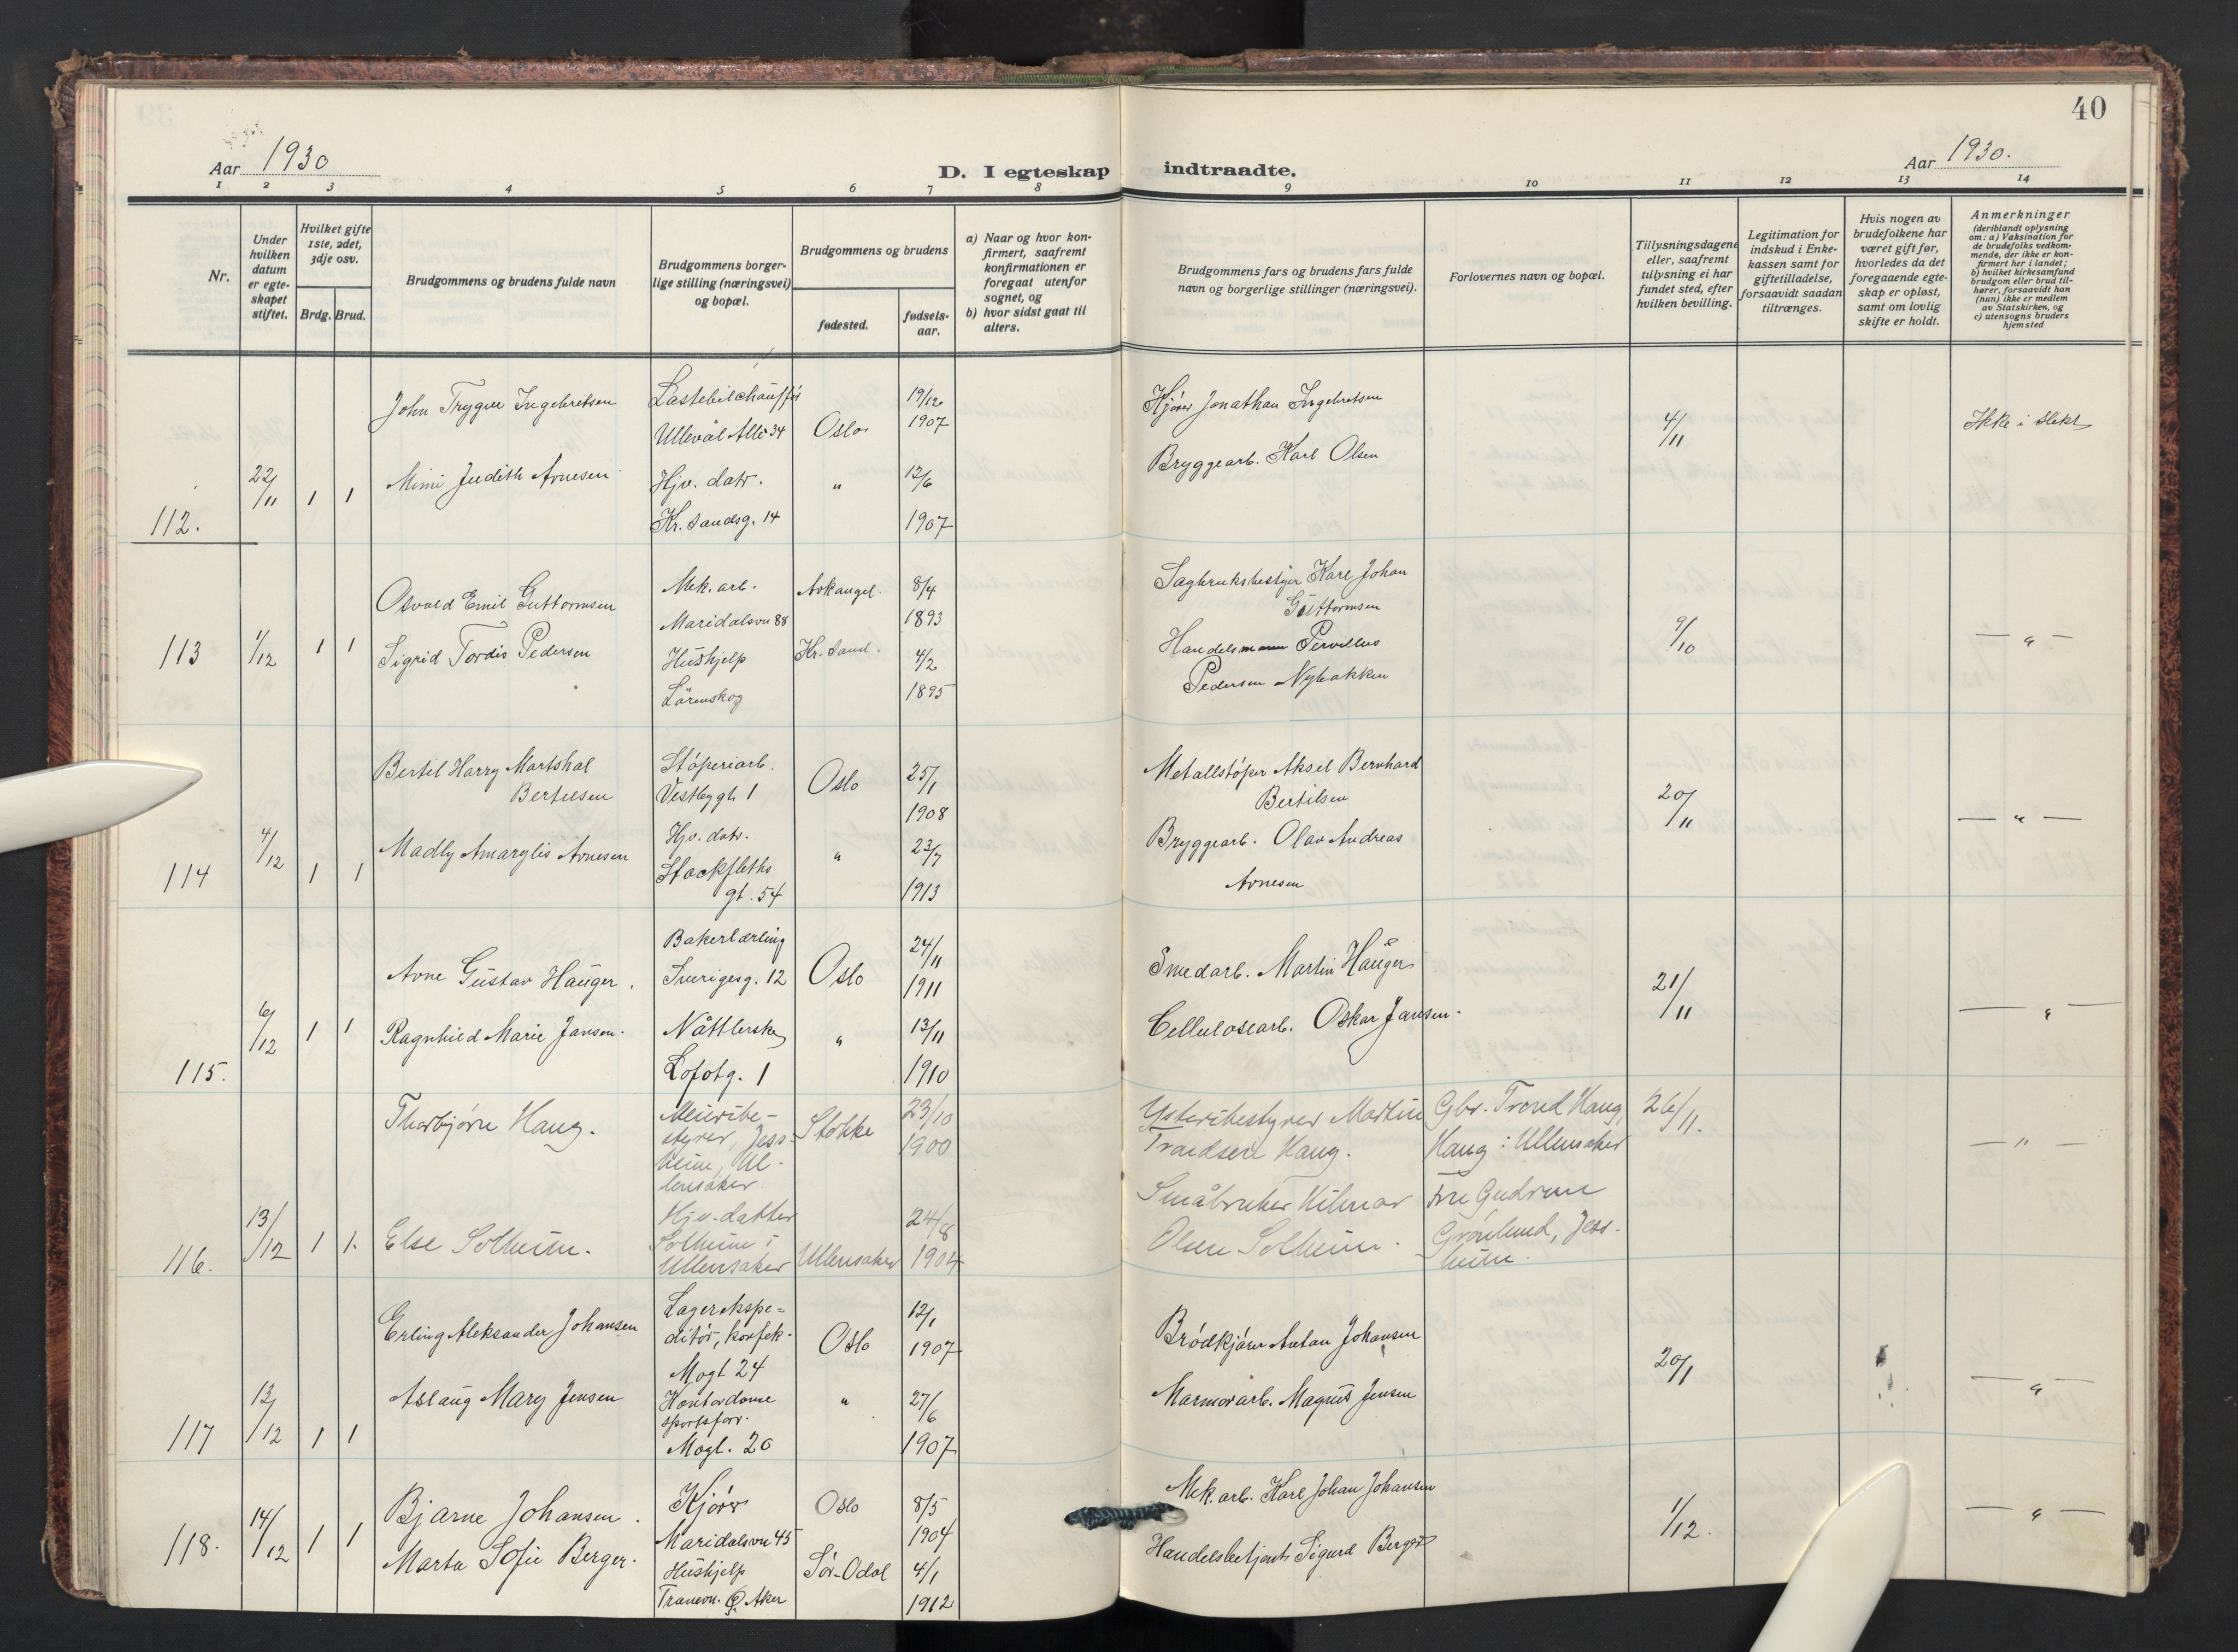 40
Aar 1930
D. I egteskap indtraadte.
Aar 1930.
1 2 3 4 5 6 7 8 9 10 11 12 13 14
Nr.
Under hvilken datum er egteskapet stiftet.
Hvilket gifte 1ste, 2det, 3dje osv.
Brdg. Brud.
Brudgommens og brudens fulde navn
Brudgommens borgerlige stilling (næringsvei) og bopæl.
Brudgommens og brudens
fødested.
fødselsaar.
a) Naar og hvor konfirmert, saafremt konfirmationen er foregaat utenfor sognet, og
b) hvor sidst gaat til alters.
Brudgommens fars og brudens fars fulde navn og borgerlige stillinger (næringsvei).
Forlovernes navn og bopæl.
Tillysningsdagene eller, saafremt tillysning ei har fundet sted, efter hvilken bevilling.
Legitimation for indskud i Enkekassen samt for giftetilladelse, forsaavidt saadan tiltrænges.
Hvis nogen av brudefolkene har været gift før, hvorledes da det foregaaende egteskap er opløst, samt om lovlig skifte er holdt.
Anmerkninger (deriblandt oplysning om: a) Vaksination for de brudefolks vedkommende, der ikke er konfirmert her i landet; b) hvilket kirkesamfund brudgom eller brud tilhører, forsaavidt han (hun) ikke er medlem av Statskirken, og c) utensogns bruders hjemsted
John Trygve Ingebretsen Lastebilchauffør Ullevål Allé 34 Oslo 19/12 1907 Kjører Jonathan Ingebretsen 4/11 Ikke i slekt
112. 22/11 1 1 Mimi Judith Arnesen Hjv. datr. Kr. Sandsg. 14 " 12/6 1907 Bryggearb. Karl Olsen
Osvald Emil Guttormsen Mek. arb. Maridalsvn 88 Arkangel. 8/4 1893 Sagbruksbestyrer Karl Johan Guttormsen
113 1/12 1 1 Sigrid Tordis Pedersen Hushjelp Lørenskog Kr. Sand. 4/2 1895 Handelsmann Pedersen Nybakken 9/10 — " —
Bertil Harry Martshal Bertelsen Støperiarb. Vestbygt. 1 Oslo 25/1 1908 Metallstøper Aksel Bernhard Bertilsen 20/11 — " —
114 4/12 1 1 Madly Amarylis Arnesen Hjv. datr. Stockfleths gt. 54 " 23/7 1913 Bryggearb. Olav Andreas Arnesen
Arne Gustav Hauger. Bakerlærling Sverigesg. 12 Oslo 24/11 1911 Smedarb. Martin Hauger 21/11 — " —
115. 6/12 1 1 Ragnhild Marie Jansen. Nåtlerske Lofotg. 1 " 13/11 1910 Cellulosearb. Oskar Jansen.
Thorbjørn Haug. Meieribestyrer, Jessheim, Ullensaker. Stokke 23/10 1900 Ysteribestyrer Martin Trondsen Haug. Gbr. Trond Haug, Haug i Ullensaker 26/11. — " —
116. 13/12 1 1. Else Solheim. Hjv. datter Solheim i Ullensaker Ullensaker 24/8 1904 Småbruker Hilmar Olsen Solheim. Fru Gudrun Grønlund, Jessheim.
Erling Aleksander Johansen Lagerekspeditør, konfek. Mogt 24 Oslo 12/1 1907 Brødkjører Anton Johansen 20/1 — " —
117 13/12 1 1 Aslaug Mary Jensen Kontordame sportsforr. Mogt. 20 " 27/6 1907 Marmorarb. Magnus Jensen
Bjarne Johansen. Kjører Maridalsvn 45 Oslo 8/5 1904 Mek. arb. Karl Johan Johansen 1/12. — " —
118. 14/12 1 1 Marta Sofie Berger. Hushjelp Tranevn. Aker Sør-Odal 4/1 1912 Handelsbetjent Sigurd Berger